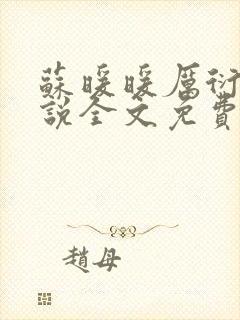 蘇暖暖厲衍
說全文免費
趙母